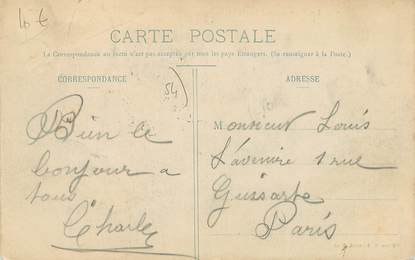 10 €
CARTE POSTALE
La Correspondance au recto n'est pas acceptée par tous les pays Etrangers. (Se renseigner à la Poste.)
CORRESPONDANCE
54
Bien le
bonjour a
tous
Charles
ADRESSE
Monsieur Louis
1 rue
Paris